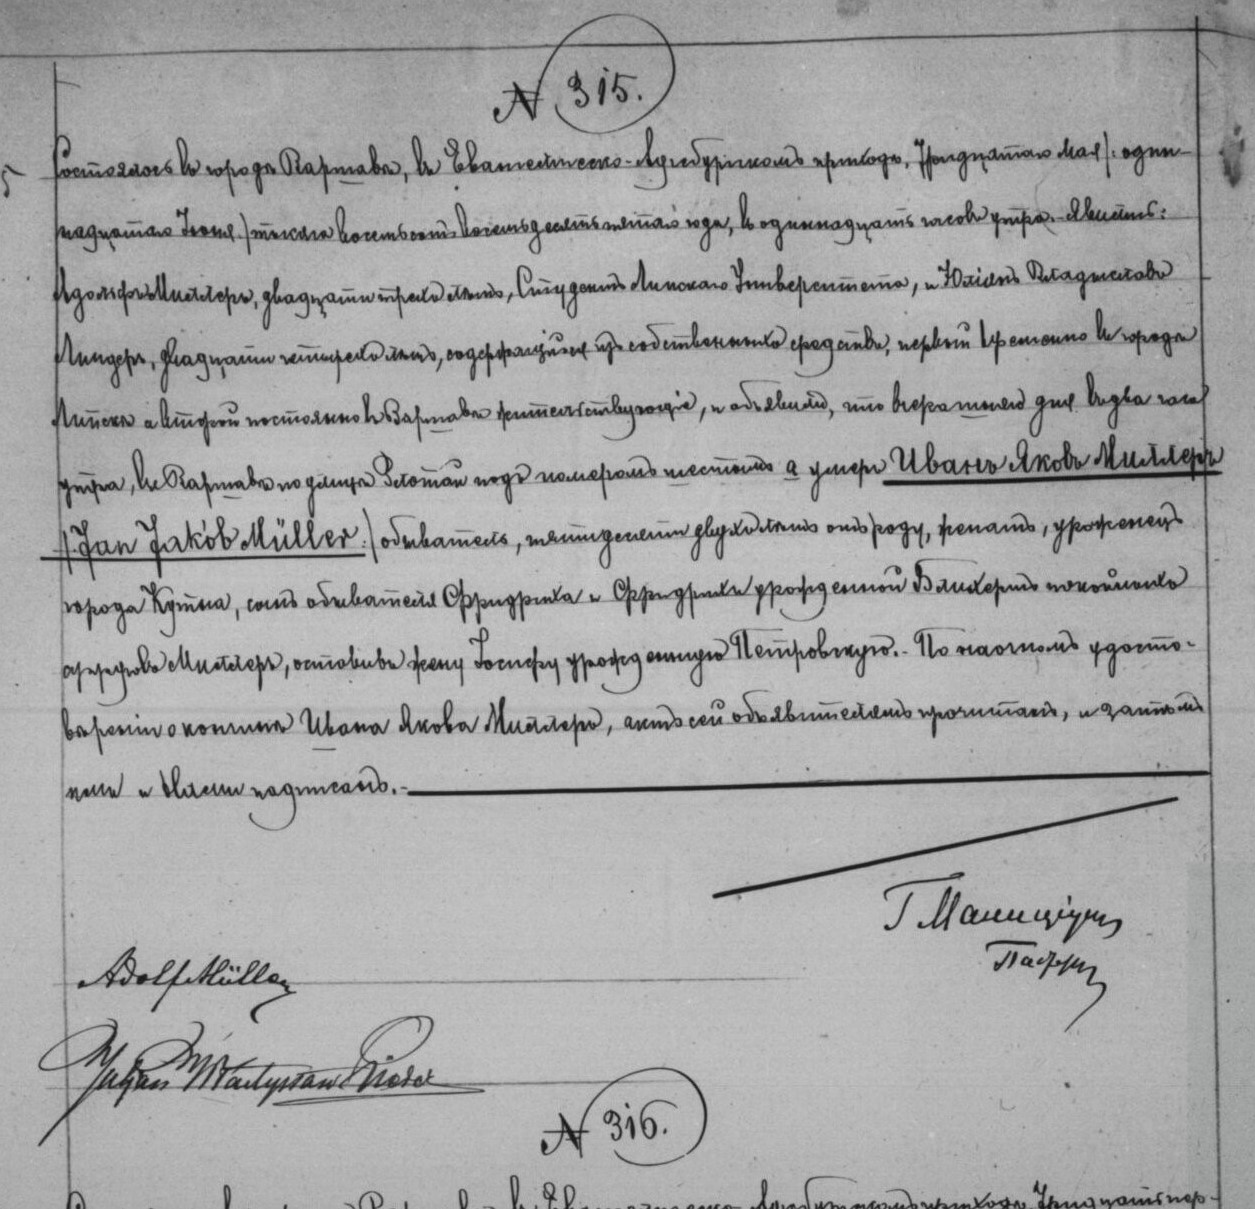 N 315.
Состоялось въ городѣ Варшавѣ, въ Евангелическо-Аугсбургскомъ приходѣ, Тридцатаго Мая /: один-
5
надцатаго Іюня /тысяча восемьсотъ восемьдесятъ пятаго года, въ одиннадцать часовъ утра. Явились:
Адольфъ Миллеръ, двадцати трехъ лѣтъ, Студентъ Университета, и Юліанъ Владиславъ
Линдеръ, двадцати четырехъ лѣтъ, содержащійся изъ собственныхъ средствъ, первый временно въ городѣ
а второй постоянно въ Варшавѣ жительствующіе, и объявили, что вчерашняго дня въ два часа
утра, въ Варшавѣ по улицѣ Золотой подъ номеромъ шестымъ а умеръ Иванъ Яковъ Миллеръ
/:Jan Jakób Müller:/ обыватель, пятидесяти двухъ лѣтъ отъ роду, женатъ, уроженецъ
города Кутна, сынъ обывателя Фридриха и Фридрики урожденной покойныхъ
супруговъ Миллеръ, оставивъ жену Іосифу урожденную Петровскую. - По наочномъ удосто-
вѣреніи о кончинѣ Ивана Якова Миллеръ, актъ сей объявителямъ прочитанъ, и затѣмъ
нами и оными подписанъ. -
Adolf Müller
Julian Władysław
N 316.